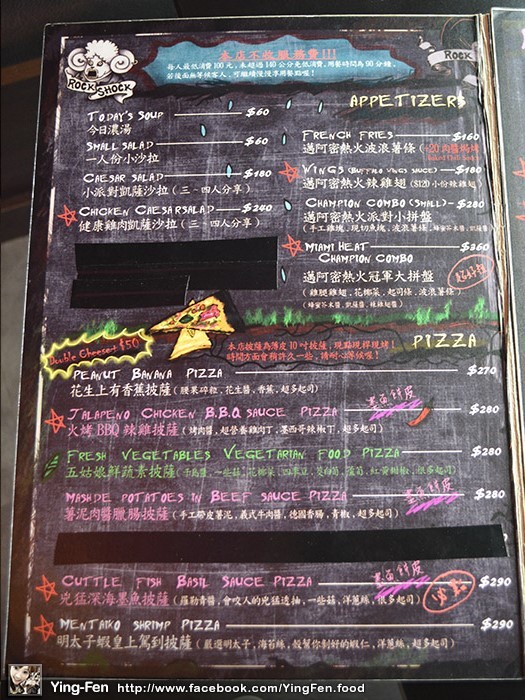 ROCK SHOCK
本店不收服務費!!!
每人最低消費100元,未超過140公分免低消費,用餐時間為90分鐘,
若後面無等候客人,可繼續慢慢享用餐點喔!
ROCK
APPETIZERS
TODAY'S SOUP $60
今日濃湯
SMALL SALAD $60
一人份小沙拉
CAESAR SALAD $180
小派對凱薩沙拉(三、四人分享)
CHICKEN CAESAR SALAD $240
健康雞肉凱薩沙拉(三、四人分享)
FRENCH FRIES $160
邁阿密熱火波浪薯條
WINGS (BUFFALO WINGS SAUCE) $180
邁阿密熱火辣雞翅($120小份辣雞翅)
CHAMPION COMBO (SMALL) $280
邁阿密熱火派對小拼盤
(手工雞塊,現切魚塊,波浪薯條,蜂蜜芥末醬,凱薩醬)
MIAMI HEAT $360
CHAMPION COMBO
邁阿密熱火冠軍大拼盤
(雞腿雞翅,花椰菜,起司條,波浪薯條)
(蜂蜜芥末醬,凱薩醬,辣雞翅醬)
Double Cheese+$50
本店披薩為薄皮10吋披薩,現點現桿現烤!
時間方面會稍許久一些,請耐心等候喔!
PIZZA
PEANUT BANANA PIZZA $270
花生上有香蕉披薩(腰果碎粒,花生醬,香蕉,超多起司)
JALAPENO CHICKEN B.B.Q SAUCE PIZZA $280
火烤BBQ辣雞披薩(烤肉醬,超營養雞肉丁,墨西哥辣椒丁,超多起司)
FRESH VEGETABLES VEGETARIAN FOOD PIZZA $280
五姑娘鮮蔬素披薩
MASHDE POTATOES IN BEEF SAUCE PIZZA $280
薯泥肉醬臘腸披薩(手工帶皮薯泥,義式牛肉醬,德國香腸,青椒,超多起司)
CUTTLE FISH BASIL SAUCE PIZZA $290
兇猛深海墨魚披薩(羅勒青醬,會咬人的兇猛透抽,一些菇,洋蔥絲,很多起司)
MENTAIKO SHRIMP PIZZA $290
明太子蝦皇上駕到披薩(嚴選明太子,海苔絲,殼幫你剝好的蝦仁,洋蔥絲,超多起司)
Ying-Fen http://www.facebook.com/YingFen.food